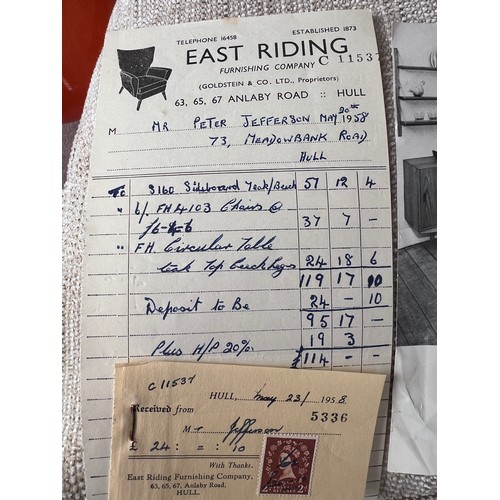 TELEPHONE 16458 ESTABLISHED 1873
EAST RIDING
FURNISHING COMPANY C 11537
(GOLDSTEIN & CO. LTD., Proprietors)
63, 65, 67 ANLABY ROAD :: HULL
M MR PETER JEFFERSON MAY 20th 1958
73, MEADOWBANK ROAD
HULL
To S160 Sideboard Teak/Beech 57 12 4
" 6/. FH 4103 Chairs @
37 7 -
" FH Circular Table
teak Top beech legs 24 18 6
119 17 10
Deposit to Be 24 - 10
95 17 -
19 3
Plus H/P 20% £114 -
C11537
HULL, May 23/ 1958
Received from 5336
Mr Jefferson
£ 24 : = : 10
With Thanks.
East Riding Furnishing Company,
63, 65, 67, Anlaby Road,
HULL.